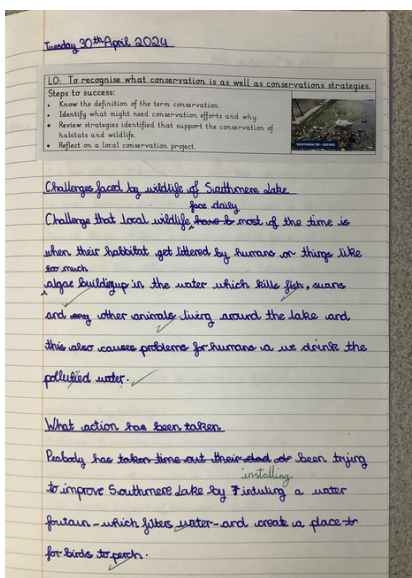 Tuesday 30th April 2024
LO: To recognise what conservation is as well as conservations strategies.
Steps to success:
• Know the definition of the term conservation.
• Identify what might need conservation efforts and why.
• Review strategies identified that support the conservation of
habitats and wildlife.
• Reflect on a local conservation project.
Challenges faced by wildlife of Southmere Lake
face daily
Challenge that local wildlife have to most of the time is
when their habbitat get littered by humans or things like
too much
algae buildingup in the water which kills fish, swans
and any other animals living around the lake and
this also causes problems for humans a we drink the
polluted water.
What action has been taken
Peabody has taken time out their been trying
installing
to improve Southmere Lake by a water
foutain-which filters water-and create a place to
for birds to perch.